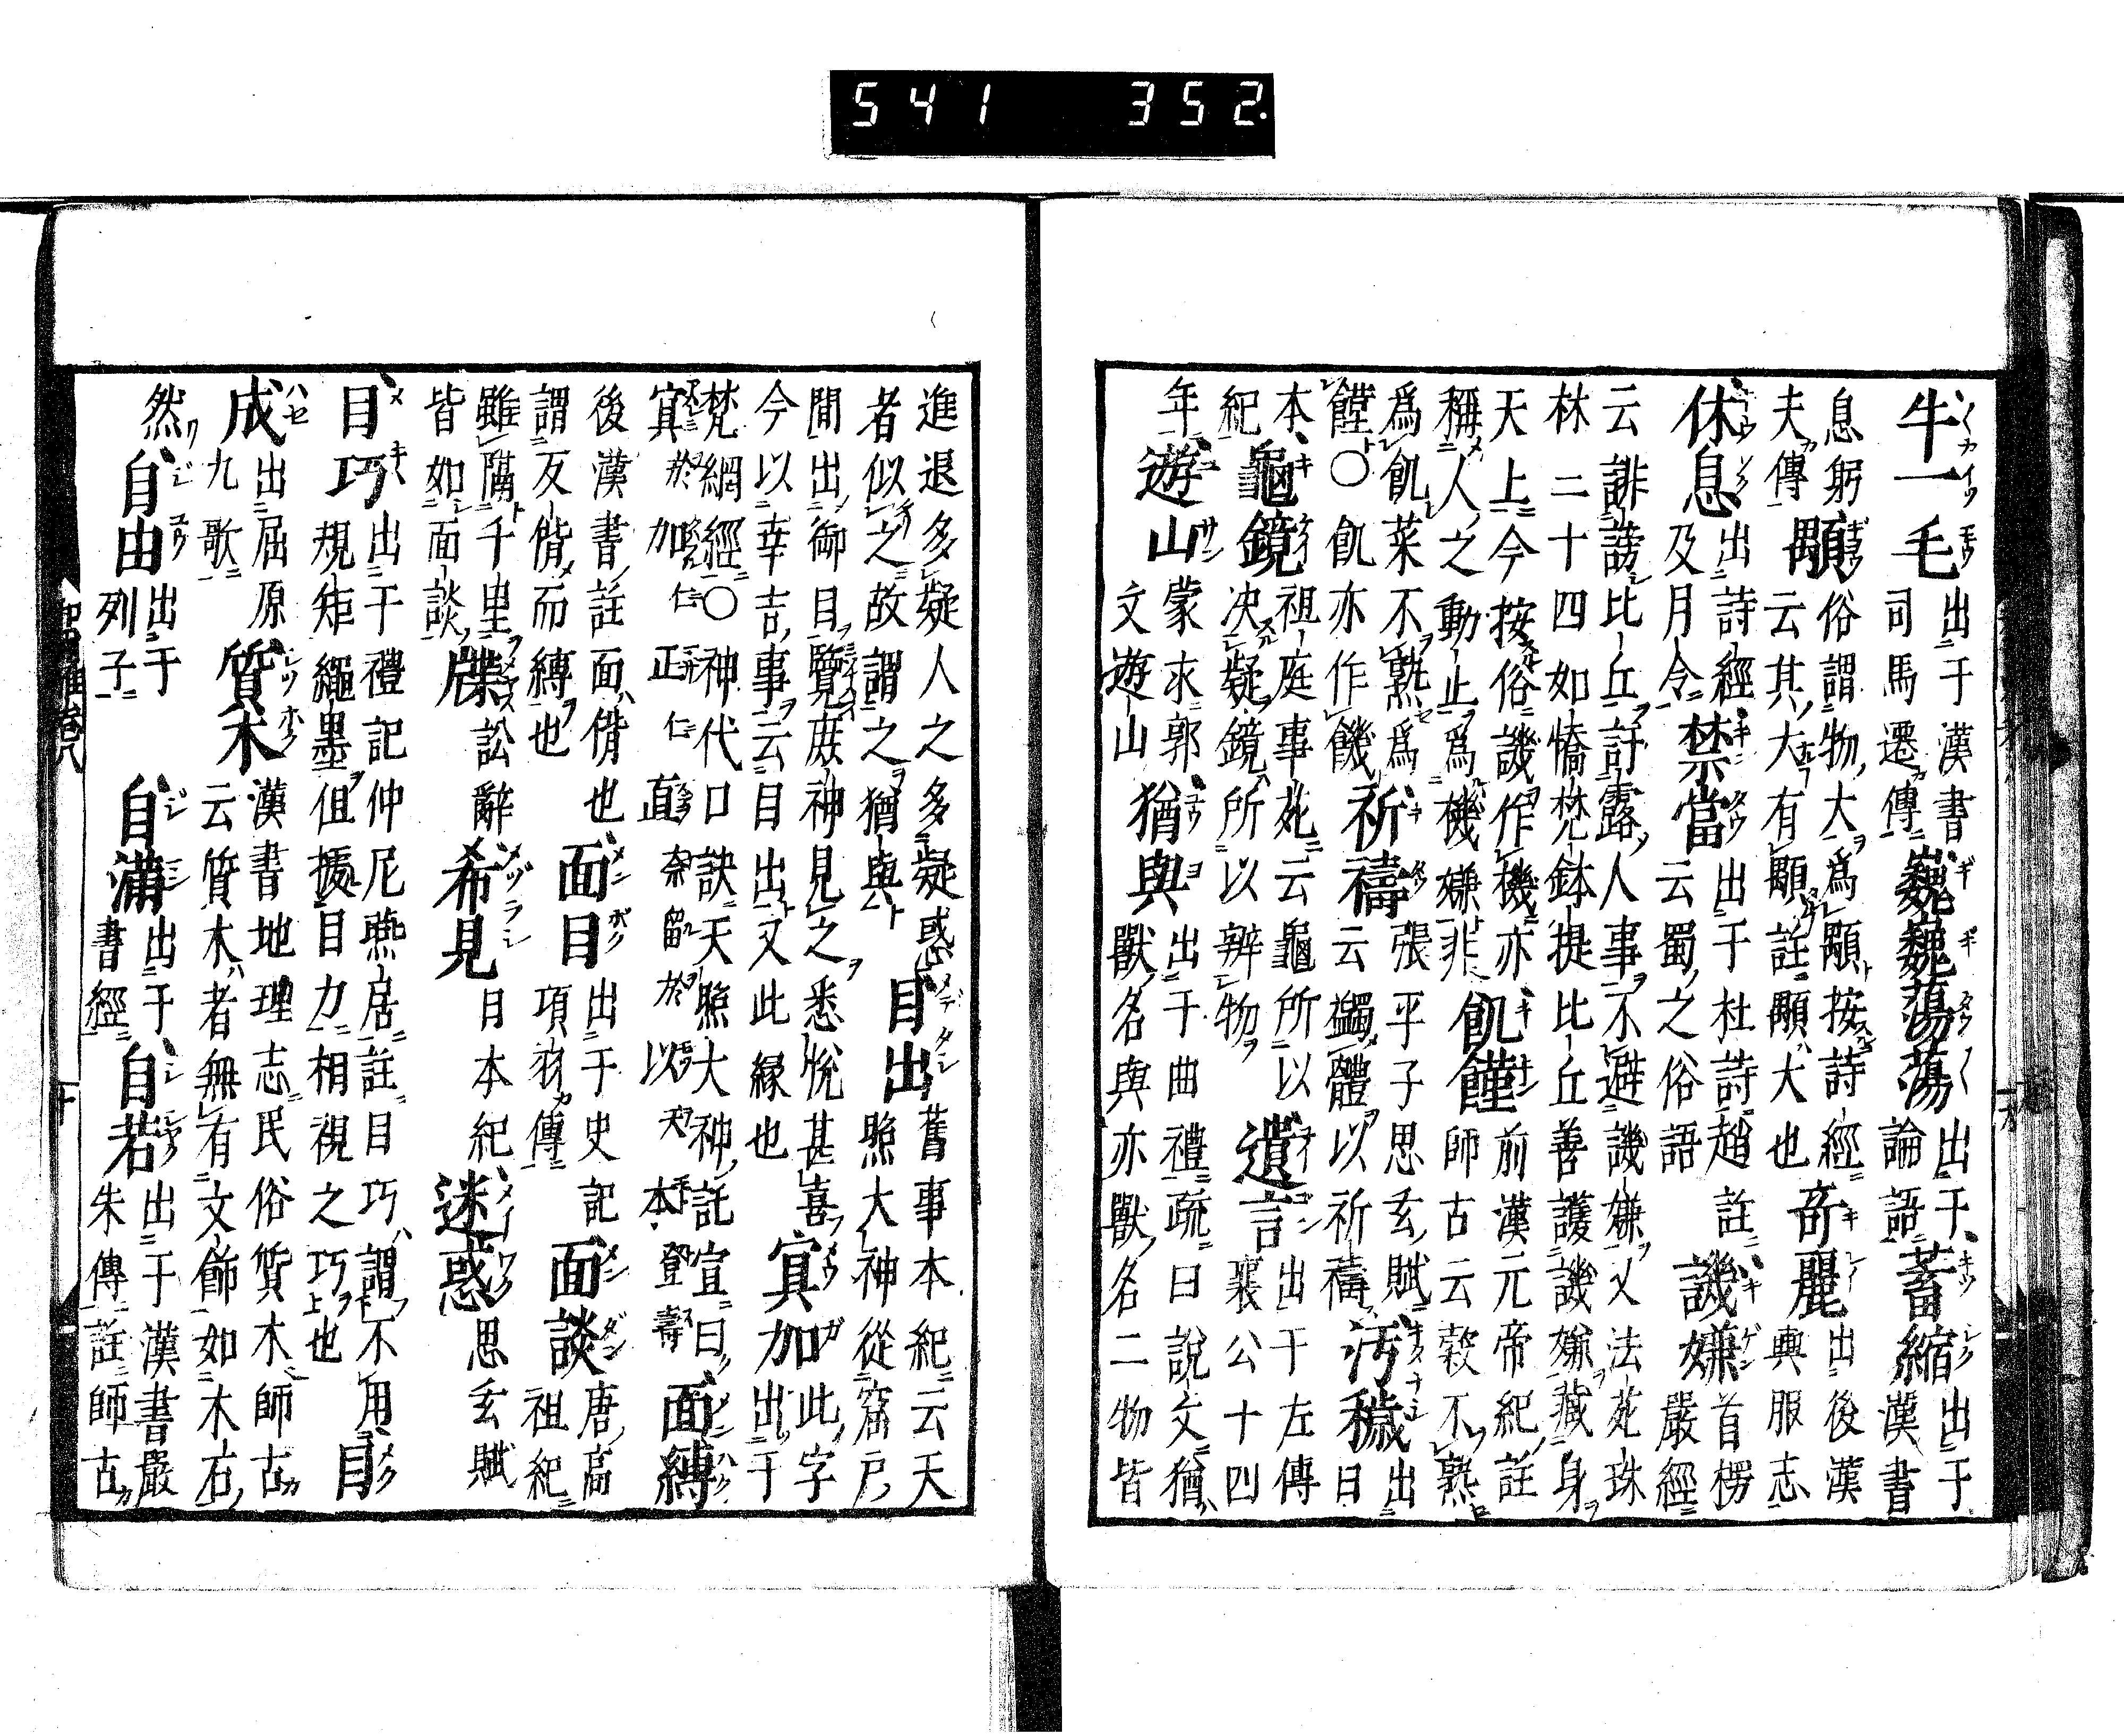 541 352
牛一毛
出于漢書
司馬遷傳
巍巍蕩蕩
出于
論語
蓄縮
出于漢書
息躬
夫傳
顒
俗謂物大爲顒按詩經
云其大有顒註顒大也
奇麗
出後漢
輿服志
休息
出詩經
及月令
禁當
出于杜詩趙註
云蜀之俗語
譏嫌
首楞
嚴經
云誹謗比丘訐露人事不避譏嫌又法苑珠
林二十四如憍梵鉢提比丘善護譏嫌藏身
天上今按俗譏作機亦
稱人之動止爲機嫌非
飢饉
前漢元帝紀註
師古云穀不熟
爲飢菜不熟爲
饉○飢亦作饑
祈禱
張平子思玄賦
云蠲體以祈禱
汚穢
出
日
本
紀
龜鏡
祖庭事苑云龜所以
决疑鏡所以辨物
遺言
出于左傳
襄公十四
年
遊山
蒙求郭
文遊山
猶與
出于曲禮疏曰說文猶
獸名與亦獸名二物皆
進退多疑人之多疑惑
者似之故謂之猶與
目出
舊事本紀云天
照大神從窟戸
間出御目覽庶神見之悉悦甚喜
今以幸吉事云目出又此縁也
冥加
此字
出于
梵網經○神代口訣天照大神託宣曰
冥於加仁正仁直奈留於以天本登壽
面縛
後漢書註面偝也
謂反偝而縛也
面目
出于史記
項羽傳
面談
唐高
祖紀
雖隔千里
皆如面談
牒
訟辭
希見
日本紀
迷惑
思玄賦
目巧
出于禮記仲尼燕居註目巧謂不用
規矩繩墨但據目力相視之巧也
目成
出屈原
九歌
質木
漢書地理志民俗質木師古
云質木者無有文飾如木石
然
自由
出于
列子
自滿
出于
書經
自若
出于漢書嚴
朱傳註師古